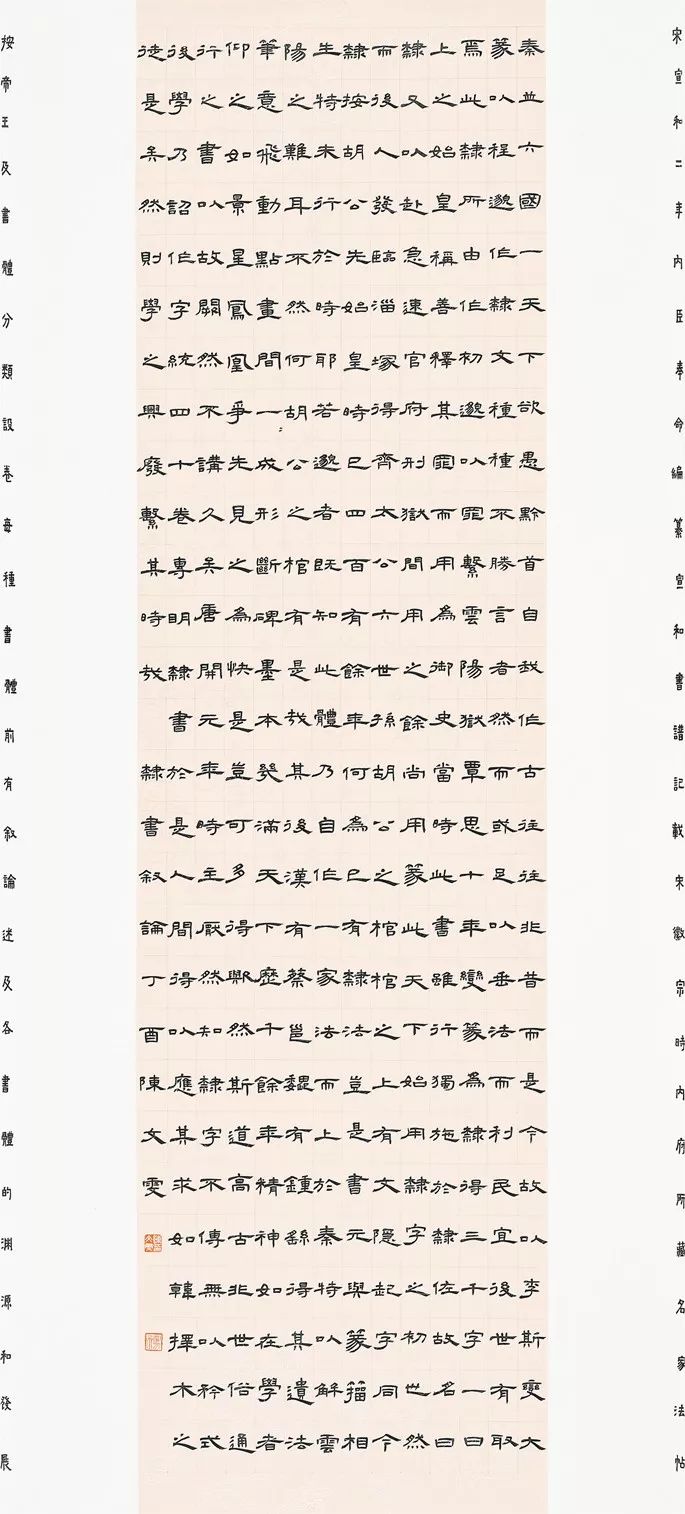 宋宣和二年內臣奉命編纂宣和書譜記載宋徽宗時內府所藏名家法帖
秦並六國一天下欲愚黔首自我作古往往非昔而是今故以李斯變大
篆以程邈作隸文種種不勝言者然而或足以垂法而利民宜後世有取
焉此隸所由作初邈以罪繫雲陽獄覃思十年變篆為隸得三千字一曰
上之始皇稱善釋其罪而用為御史當時此書雖行獨施於隸佐故名曰
隸又以赴急速官府刑獄間用之餘尚用篆此天下始用隸字之初世然
而後人發臨淄塚得齊太公六世孫胡公之棺棺之上有文隱起字同今
隸按胡公先始皇時已四百有餘年何為已有隸法豈是書元與篆籀相
生特未行於時耶若邈者既知此體乃自作一家法而上於秦特以解雲
陽之難耳不然何胡公之棺有是哉其後漢有蔡邕魏有鍾繇得其遺法
筆意飛動點畫間一成形斷碑墨本幾滿天下歷千餘年精神如在學者
仰之如景星鳳凰爭先見之為快是豈可多得歟然斯道高古非世俗通
行之書以故闕然不講久矣唐開元年時主厭然知隸字不傳無以矜式
後學乃詔作字統四十卷專明隸書於是人間得以應其求如韓擇木之
徒是矣然則學之興廢繫其時哉
隸書敘論丁酉陳文雯
按帝王及書體分類設卷每種書體前有敘論述及各書體的淵源和發展